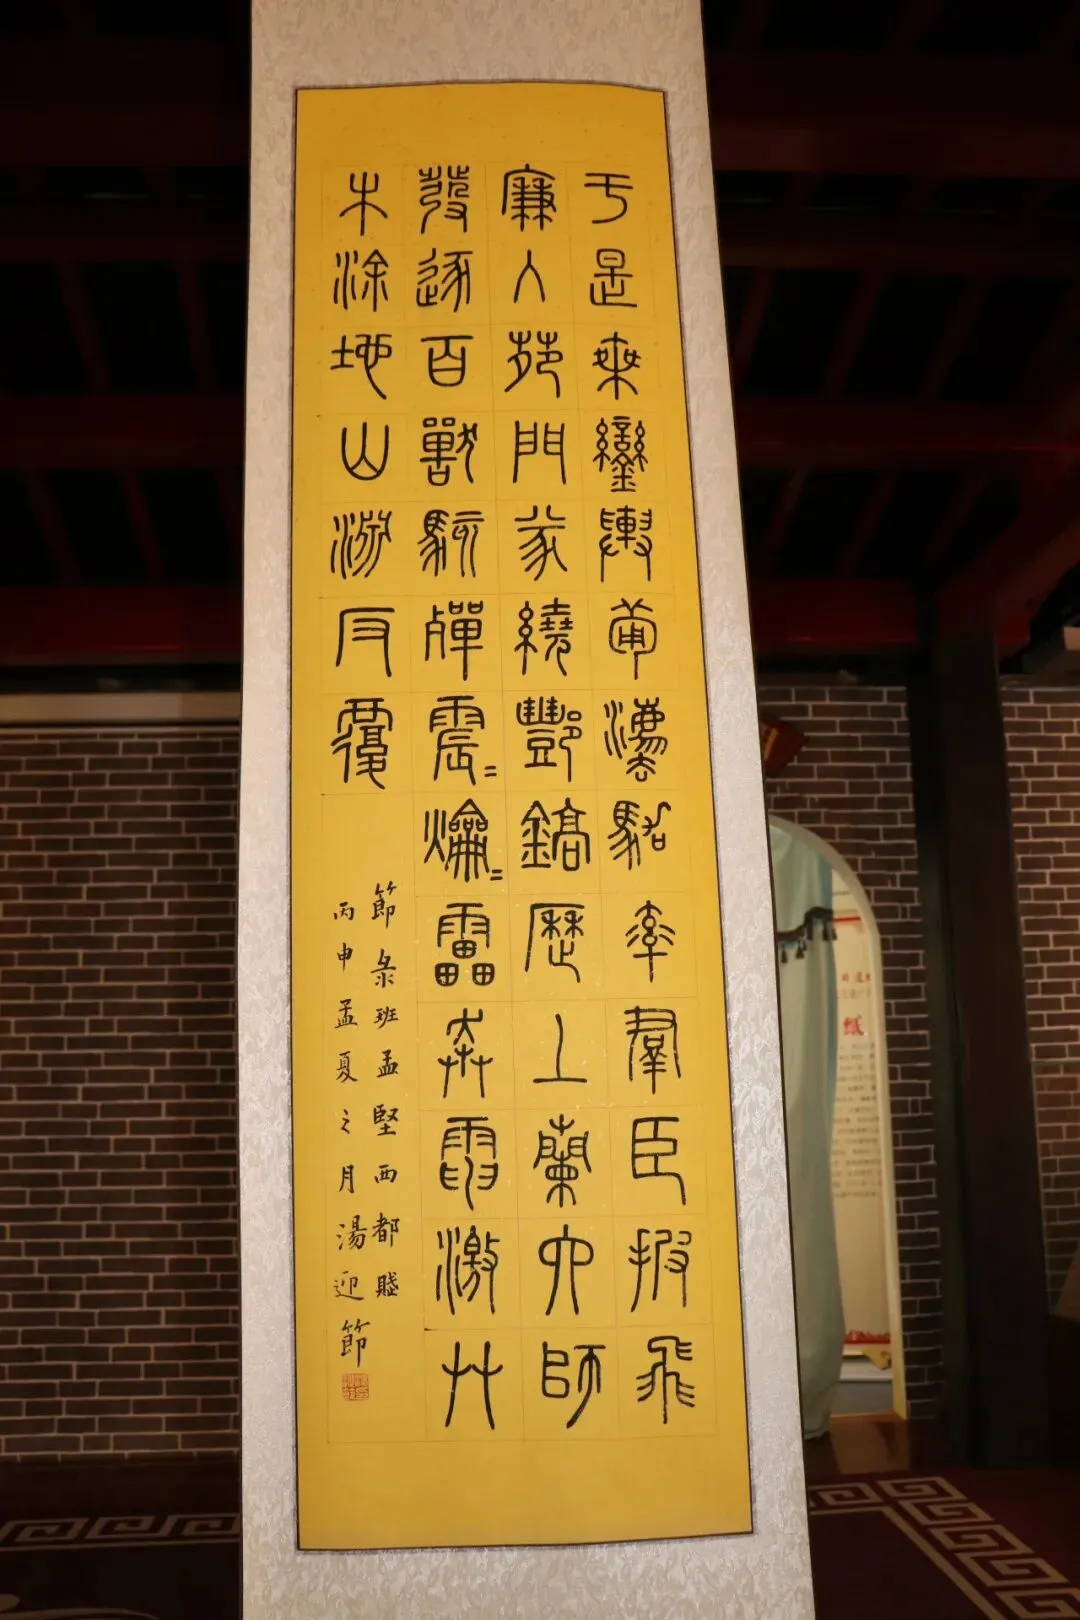 于是乘鑾輿備灋駕率羣臣披飛
廉入苑門㒸繞酆鎬歷上蘭六師
發逐百獸駭殫震=爚=靁奔電激艸
木涂地山淵反覆
節彔班孟堅西都賦
丙申孟夏之月湯迎節